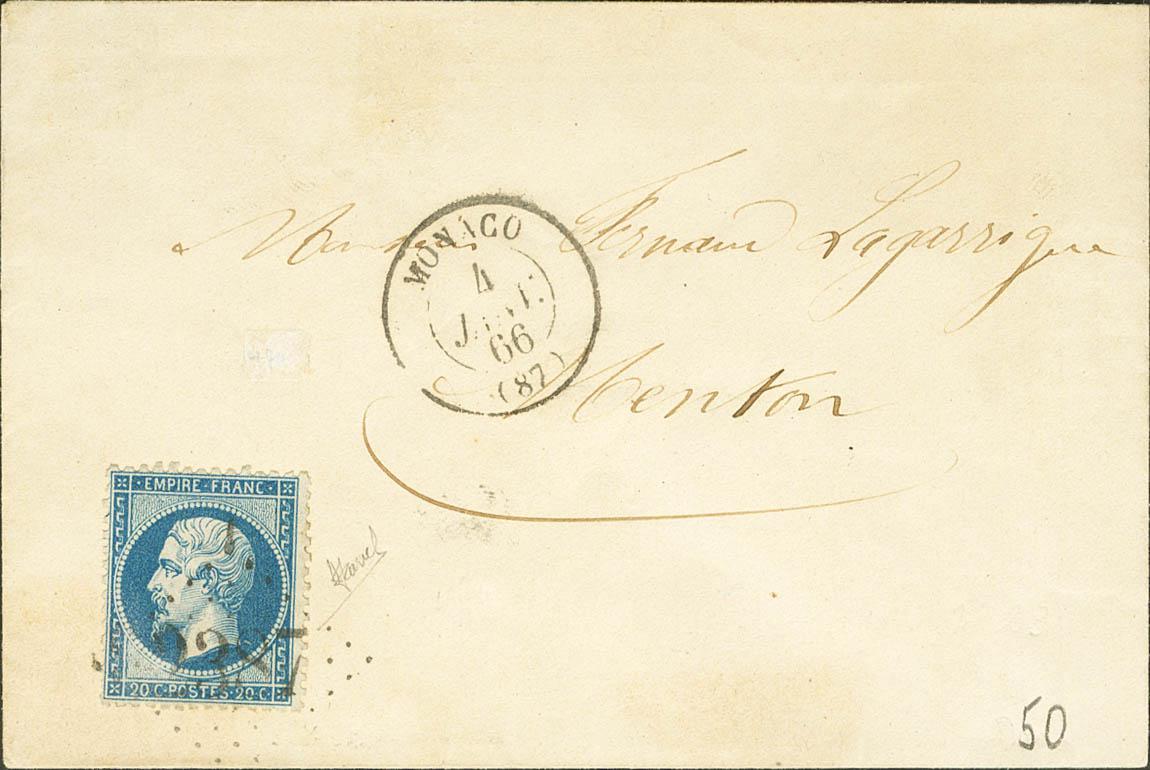 MONACO
4
JANV.
66
(87)
Monsieur Fernand Lagarrigue
Menton
EMPIRE · FRANC ·
20 C · POSTES · 20 C ·
2387
50